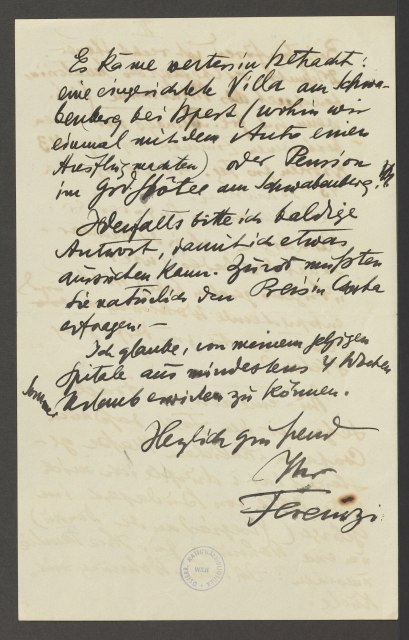 Es käme weiters in Betracht:
eine eingerichtete Villa am Schwa-
benberg bei Bpest (wohin wir
einmal mit dem Auto einen
Ausflug machten) oder Pension
im Grd Hôtel am Schwabenberg.
Jedenfalls bitte ich baldige
Antwort, damit ich etwas
aussuchen kann. Zuerst müßten
Sie natürlich den Preis in
erfragen. –
Ich glaube, von meinem jetzigen
Spitale aus mindestens 4 Wochen
Sommer Urlaub erwirken zu können.
Herzlich grüßend
Ihr
Ferenczi
NATIONALBIBLIOTHEK
WIEN